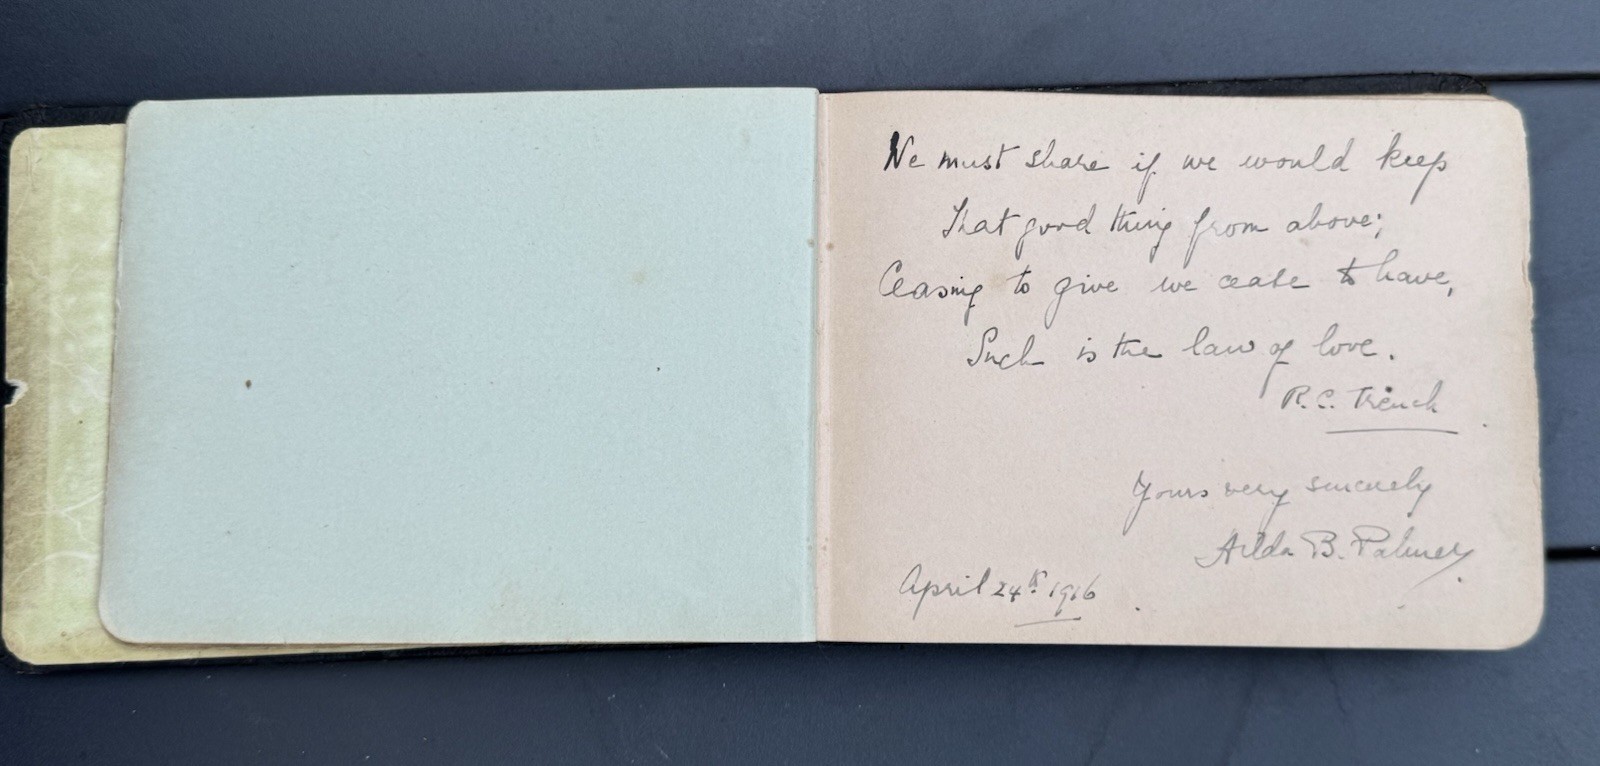 We must share if we would keep
That good thing from above;
Ceasing to give we cease to have,
Such is the law of love.
R.C. Trench
Yours very sincerely
Hilda B. Palmer
April 24th 1916